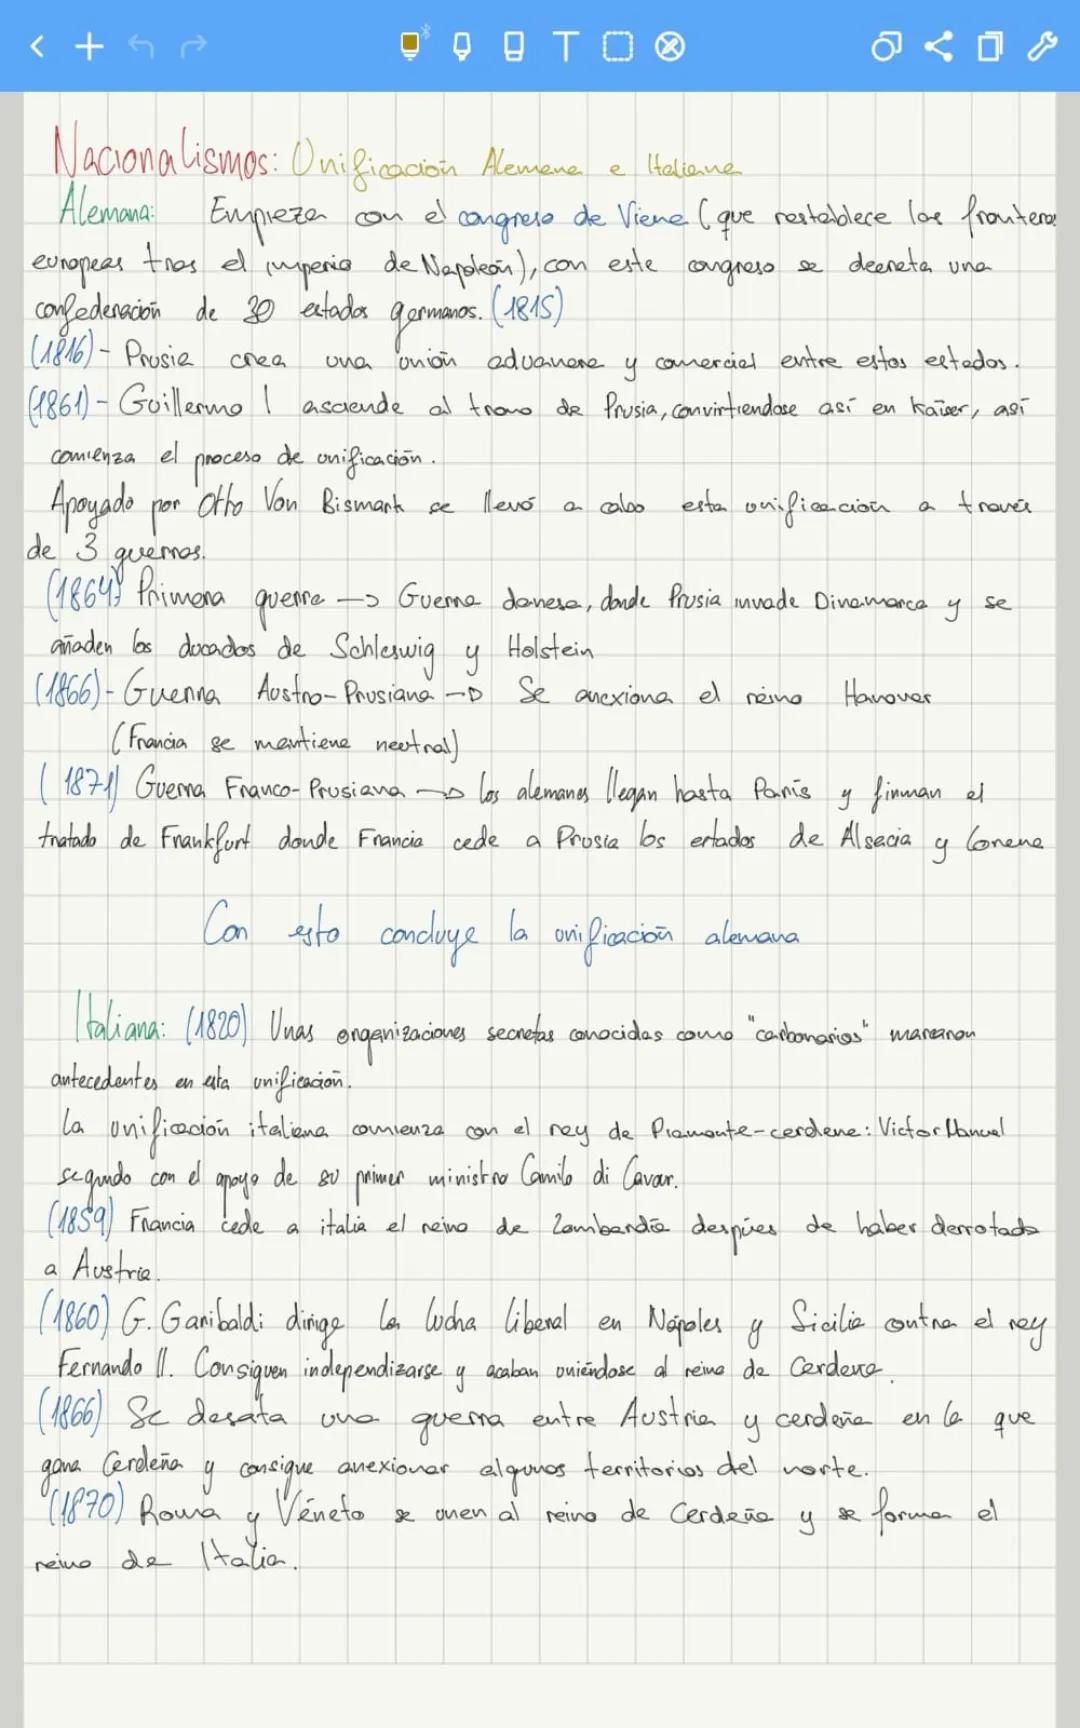 Nacionalismos: Unificación Alemana e Italiana
Alemana: Empieza con el congreso de Viena (que restablece las fronteras
europeas tras el imperio de Napoleón), con este congreso se decreta una
confederación de 30 estados germanos. (1815)
(1816)- Prusia crea una unión aduanera y comercial entre estos estados.
(1861)- Guillermo I asciende al trono de Prusia, convirtiendose así en Kaiser, así
comienza el proceso de unificación.
Apoyado por Otto Von Bismark se llevó a cabo esta unificación a través
de 3 guerras.
(1864) Primera guerra → Guerra danesa, donde Prusia invade Dinamarca y se
añaden los ducados de Schleswig y Holstein
(1866)- Guerra Austro-Prusiana → Se anexiona el reino Hanover
(Francia se mantiene neutral)
(1871) Guerra Franco-Prusiana → los alemanes llegan hasta París y firman el
tratado de Frankfurt donde Francia cede a Prusia los estados de Alsacia y Lorena
Con esto concluye la unificación alemana
Italiana: (1820) Unas organizaciones secretas conocidas como "carbonarios" marcaron
antecedentes en esta unificación.
La unificación italiana comienza con el rey de Piamonte-cerdena: Victor Manuel
segundo con el apoyo de su primer ministro Camilo di Cavour.
(1859) Francia cede a italia el reino de Lombardía despúes de haber derrotado
a Austria.
(1860) G. Garibaldi dirige la lucha liberal en Nápoles y Sicilia contra el rey
Fernando II. Consiguen independizarse y acaban uniéndose al reino de Cerdeña.
(1866) Se desata una guerra entre Austria y cerdeña en la que
gana Cerdeña y consigue anexionar algunos territorios del norte.
(1870) Roma y Véneto se unen al reino de Cerdeña y se forma el
reino de Italia.